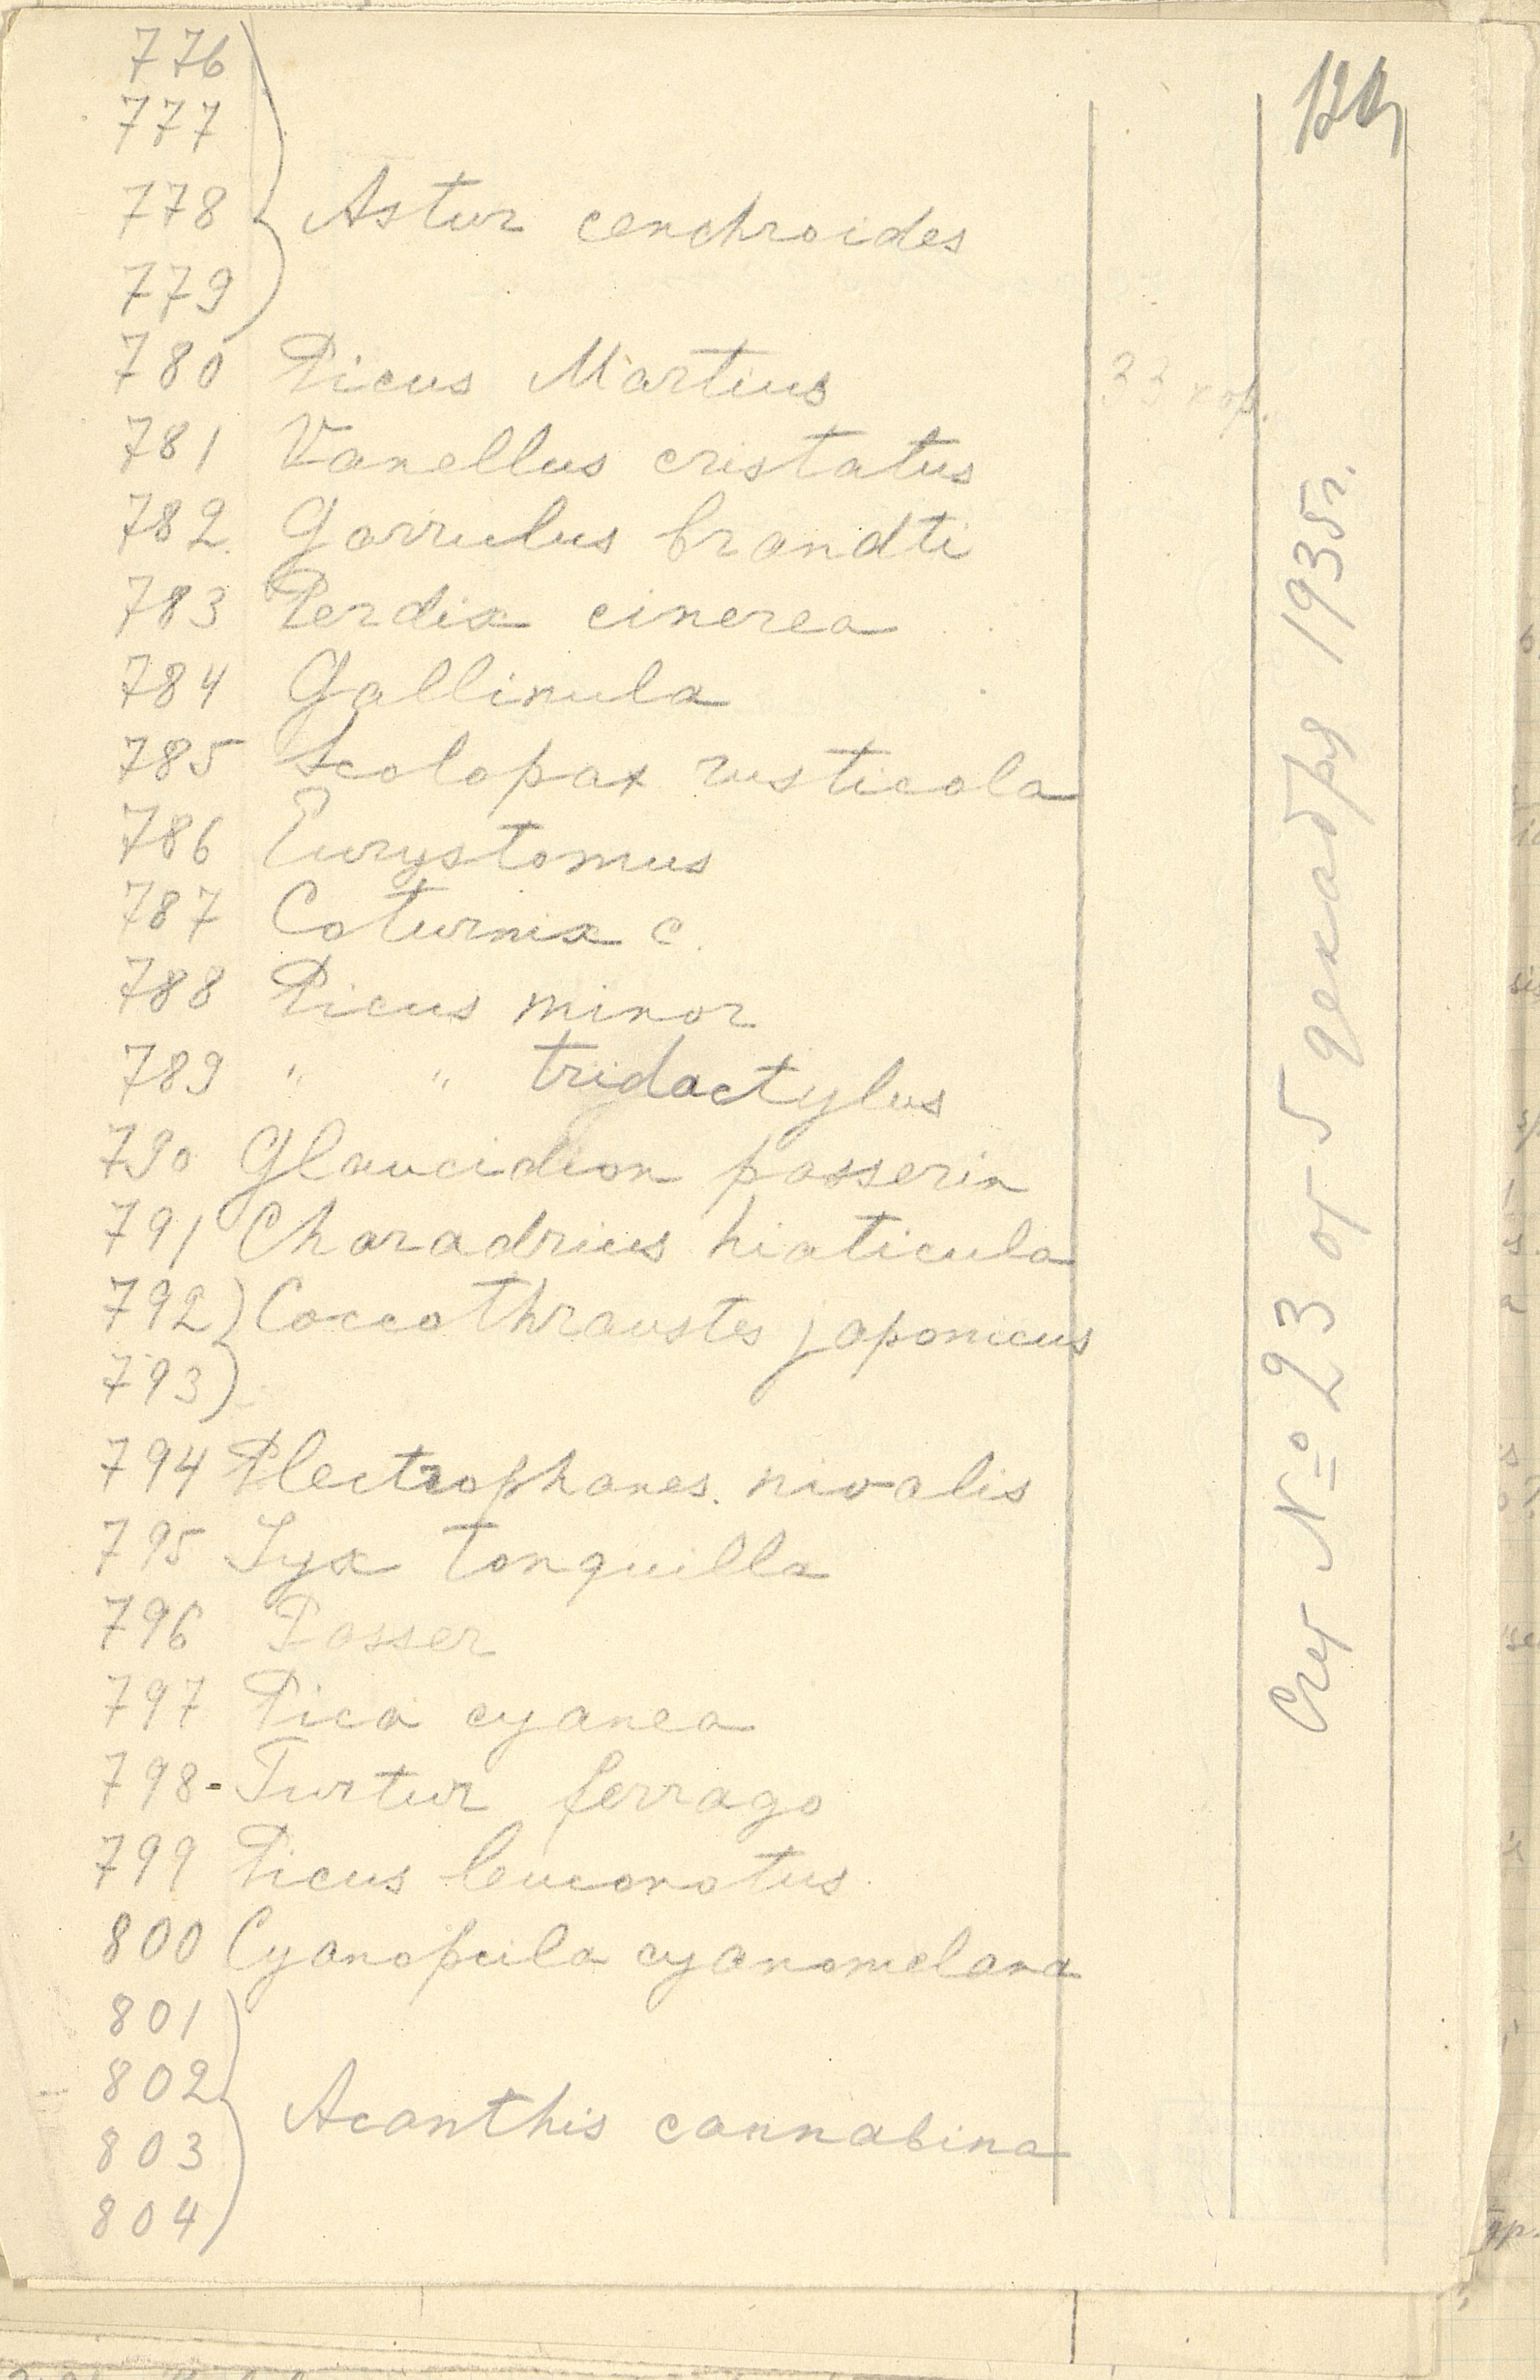 776
777
778 Astur cenchroides
779
780 Picus Martius 33 кор.
781 Vanellus cristatus
782. Garrulus brandti
783 Perdix cinerea
784 Gallinula
785 Scolopax rusticola
786 Eurystomus
787 Coturnix c.
788 Picus minor
789 " " tridactylus
790 Glaucidion passerin
791 Charadrius hiaticula
792) Coccothraustes japonicus
793)
794 Plectrophanes. nivalis
795 Jyx tonquilla
796 Passer
797 Pica cyanea
798-Turtur ferrago
799 Picus leuconotus
800 Cyanopcila cyanomelana
801
802 Acanthis cannabina
803
804
Счет № 23 от 5 декабря 1935 г.